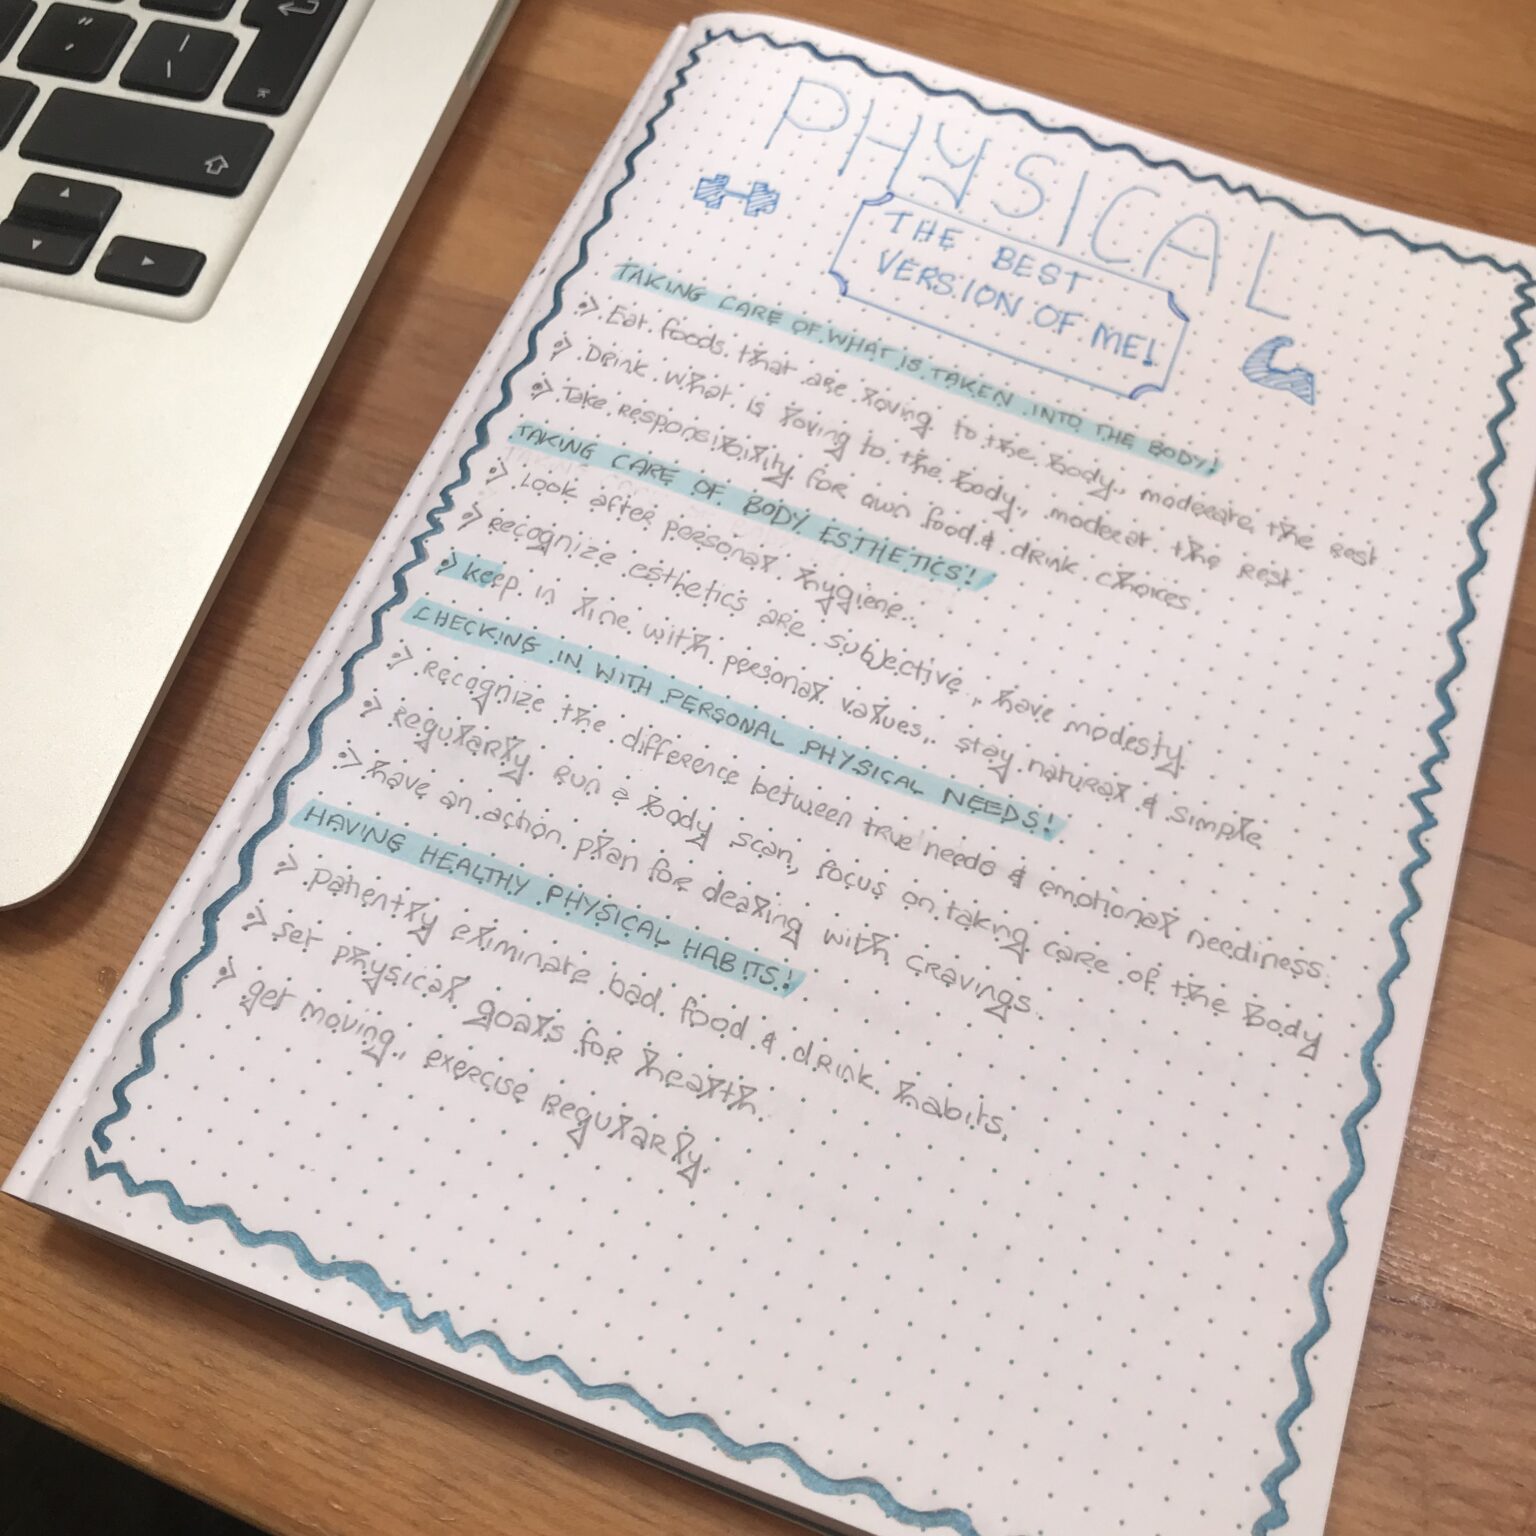 PHYSICAL
THE BEST
VERSION OF ME!
TAKING CARE OF WHAT IS TAKEN INTO THE BODY!
Eat foods that are loving to the body, moderate the rest
Drink what is loving to the body, moderat the rest
Take responsibility for own food & drink choices.
TAKING CARE OF BODY ESTHETICS!
Look after personal hygiene.
Recognize esthetics are subjective, have modesty
Keep in line with personal values, stay natural & simple
CHECKING IN WITH PERSONAL PHYSICAL NEEDS!
Recognize the difference between true needs & emotional neediness.
Regularly run a body scan, focus on taking care of the body
have an action plan for dealing with cravings.
HAVING HEALTHY PHYSICAL HABITS!
patiently eliminate bad food & drink habits.
set physical goals for health.
get moving, exercise regularly.